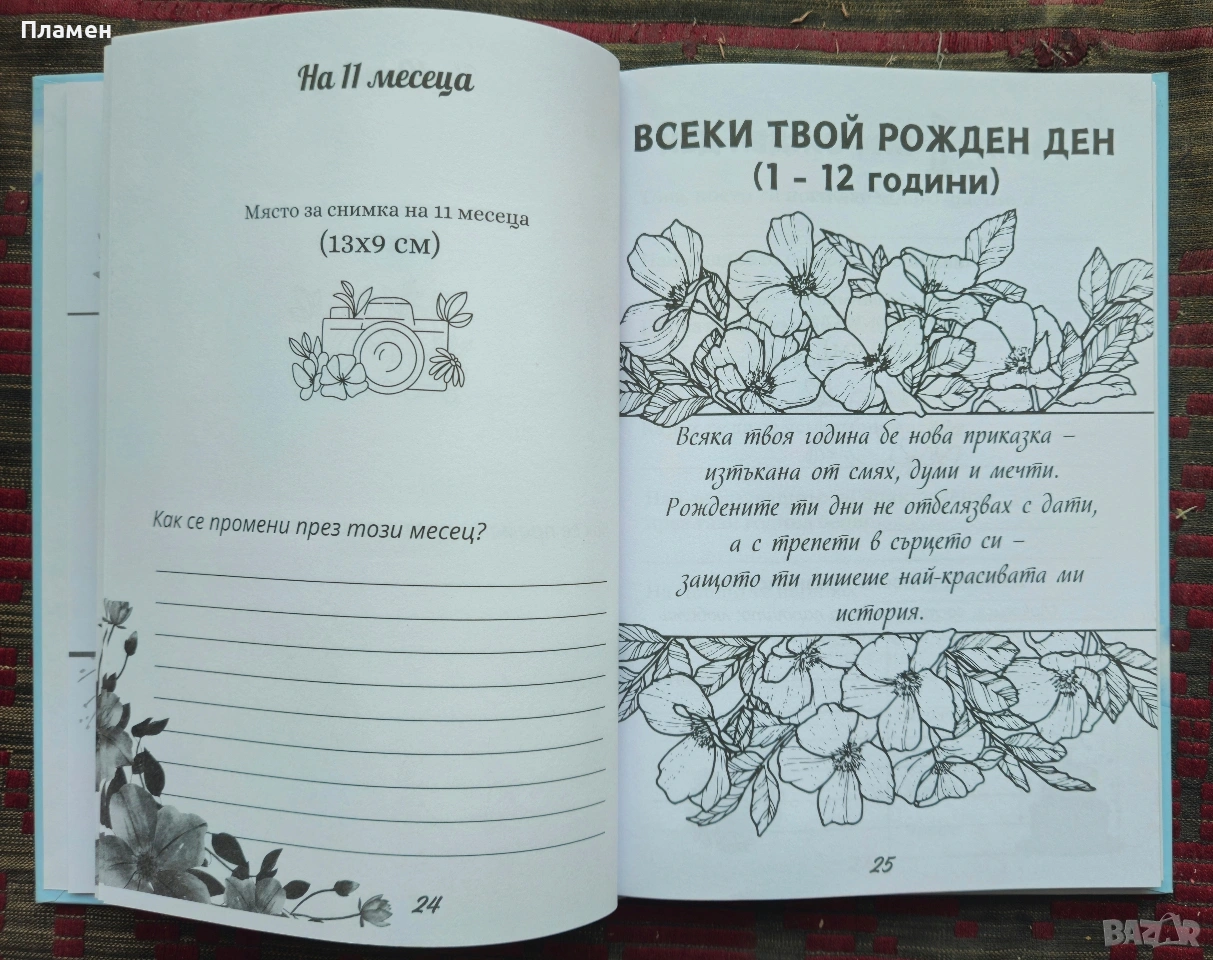 Пламен
На 11 месеца
Място за снимка на 11 месеца
(13х9 см)
Как се промени през този месец?
24
ВСЕКИ ТВОЙ РОЖДЕН ДЕН
(1 - 12 години)
Всяка твоя година бе нова приказка –
изтъкана от смях, думи и мечти.
Рождените ти дни не отбелязвах с дати,
а с трепети в сърцето си –
защото ти пишеше най-красивата ми
история.
25
BAZAR